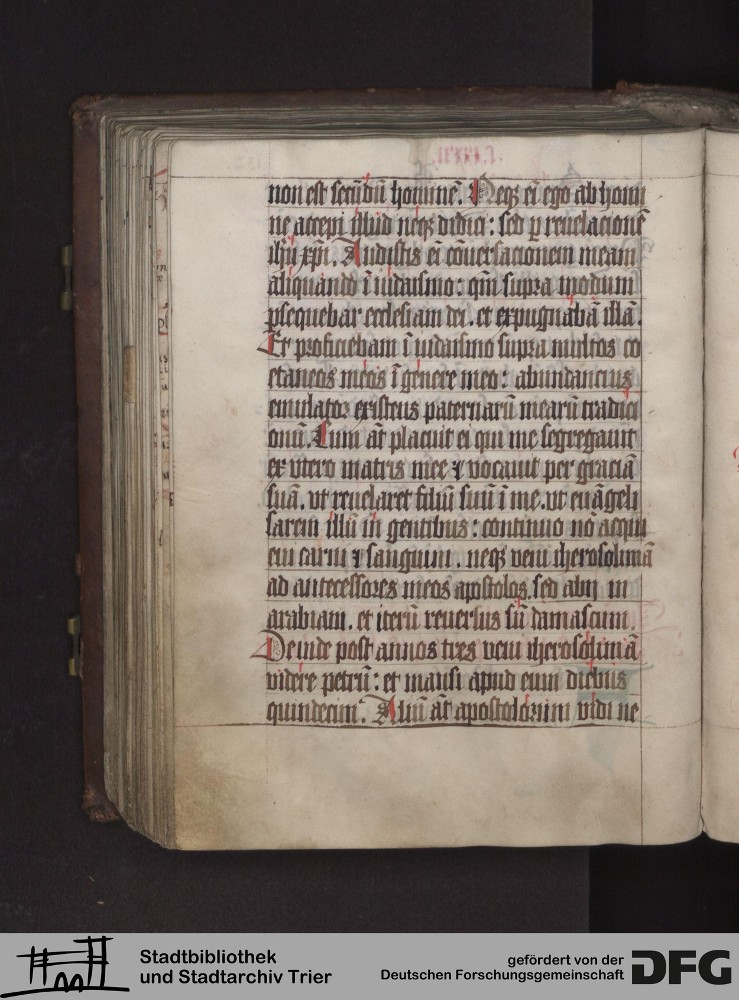 non est secūdū hominē. Neqꝫ ei ego ab homi
ne accepi illud neqꝫ didici: sed ꝑ reuelacionē
ihū xp̄i. Audistis ei cōuersacionem meam
aliquando ī iudaismo: qm̄ supra modum
ꝑsequebar ecclesiam dei. et expugnabā illā.
Et proficiebam ī iudaismo supra multos co
etaneos meos ī genere meo: abundancius
emulator existens paternarū mearū tradici
onū. Cum at̄ placuit ei qui me segregauit
ex vtero matris mee ⁊ vocauit per graciā
suā. vt reuelaret filiū suū ī me. vt euāgeli
sarem illū in gentibus: continuo nō acqui
eui carni ⁊ sanguini. neqꝫ veni iherosolimā
ad antecessores meos apostolos. sed abij in
arabiam. et iterū reuersus sū damascum.
Deinde post annos tres veni iherosolimā
videre petrū: et mansi apud eum diebus
quindecim. Aliū at̄ apostolorum vidi ne
Stadtbibliothek
und Stadtarchiv Trier
gefördert von der
Deutschen Forschungsgemeinschaft
DFG